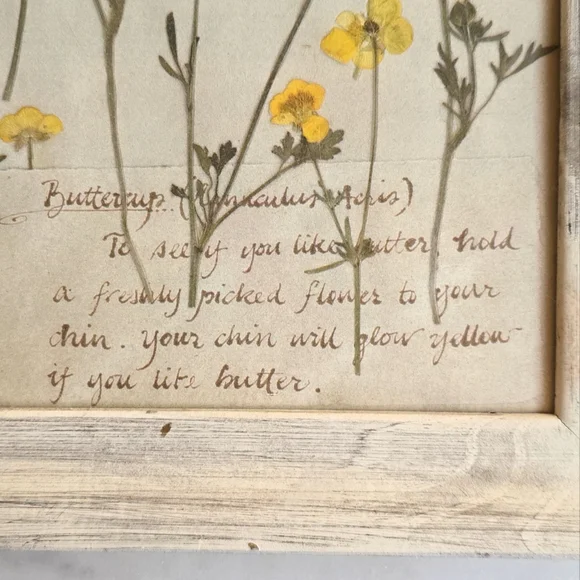 Buttercup (Ranunculus Acris)
To see if you like butter, hold
a freshly picked flower to your
chin. Your chin will glow yellow
if you like butter.